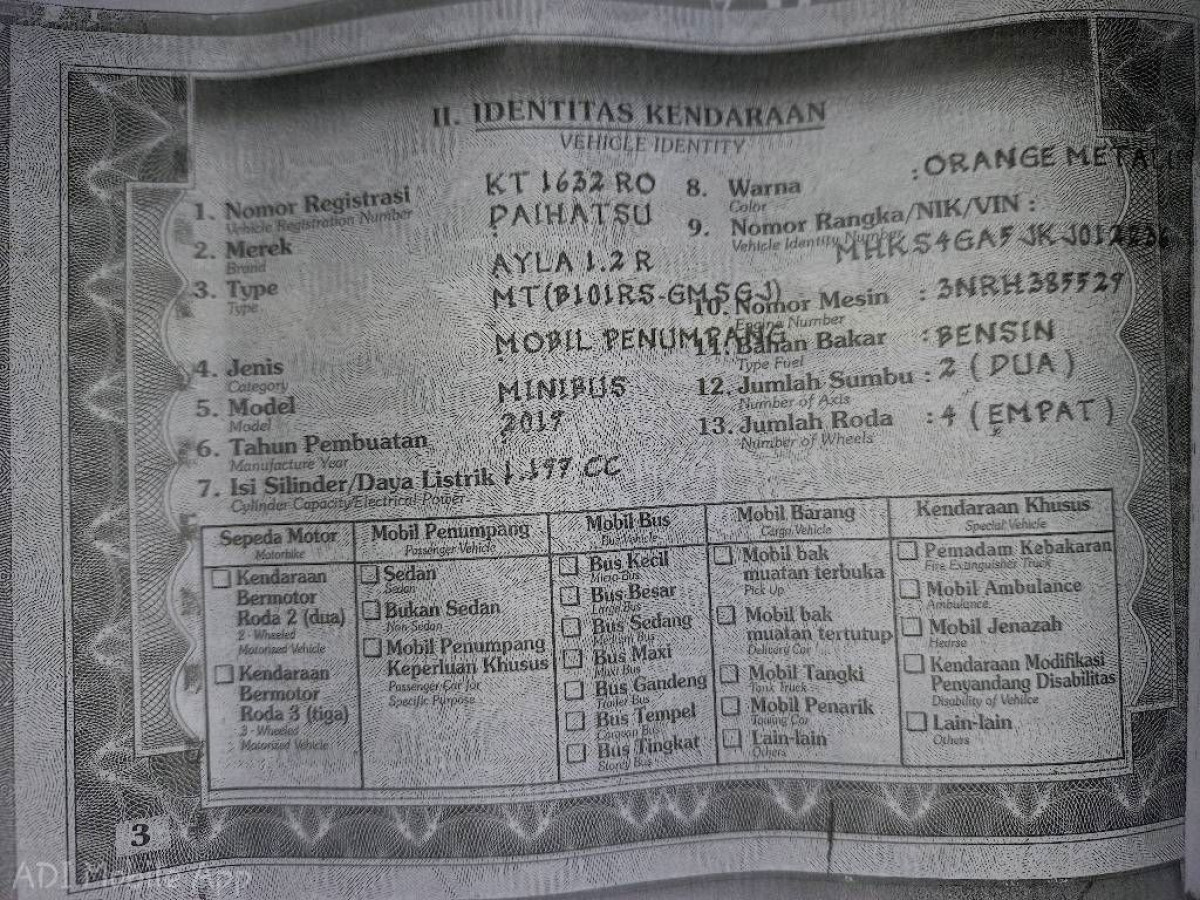 II. IDENTITAS KENDARAAN
VEHICLE IDENTITY
1. Nomor Registrasi KT 1632 RO
Vehicle Registration Number
2. Merek DAIHATSU
Brand
3. Type AYLA 1.2 R
Type MT(B101RS-GMSGJ)
4. Jenis MOBIL PENUMPANG
Category
5. Model MINIBUS
Model
6. Tahun Pembuatan 2019
Manufacture Year
7. Isi Silinder/Daya Listrik 1.197 CC
Cylinder Capacity/Electrical Power
8. Warna : ORANGE
Color
9. Nomor Rangka/NIK/VIN :
Vehicle Identity Number
10. Nomor Mesin : 3NRH385529
Engine Number
11. Bahan Bakar : BENSIN
Type Fuel
12. Jumlah Sumbu : 2 (DUA)
Number of Axis
13. Jumlah Roda : 4 (EMPAT)
Number of Wheels
Sepeda Motor
Motorbike
Kendaraan
Bermotor
Roda 2 (dua)
2 - Wheeled
Motorized Vehicle
Kendaraan
Bermotor
Roda 3 (tiga)
3 - Wheeled
Motorized Vehicle
Mobil Penumpang
Passenger Vehicle
Sedan
Sedan
Bukan Sedan
Non Sedan
Mobil Penumpang
Keperluan Khusus
Passenger Car for
Specific Purpose
Mobil Bus
Bus Vehicle
Bus Kecil
Micro Bus
Bus Besar
Large Bus
Bus Sedang
Medium Bus
Bus Maxi
Maxi Bus
Bus Gandeng
Trailer Bus
Bus Tempel
Bus
Bus Tingkat
Bus
Mobil Barang
Cargo Vehicle
Mobil bak
muatan terbuka
Pick Up
Mobil bak
muatan tertutup
Delivery Car
Mobil Tangki
Tank Truck
Mobil Penarik
Towing Car
Lain-lain
Others
Kendaraan Khusus
Special Vehicle
Pemadam Kebakaran
Fire Extinguisher Truck
Mobil Ambulance
Ambulance
Mobil Jenazah
Hearse
Kendaraan Modifikasi
Penyandang Disabilitas
Disability of Vehilce
Lain-lain
Others
3
ADI Mobile App